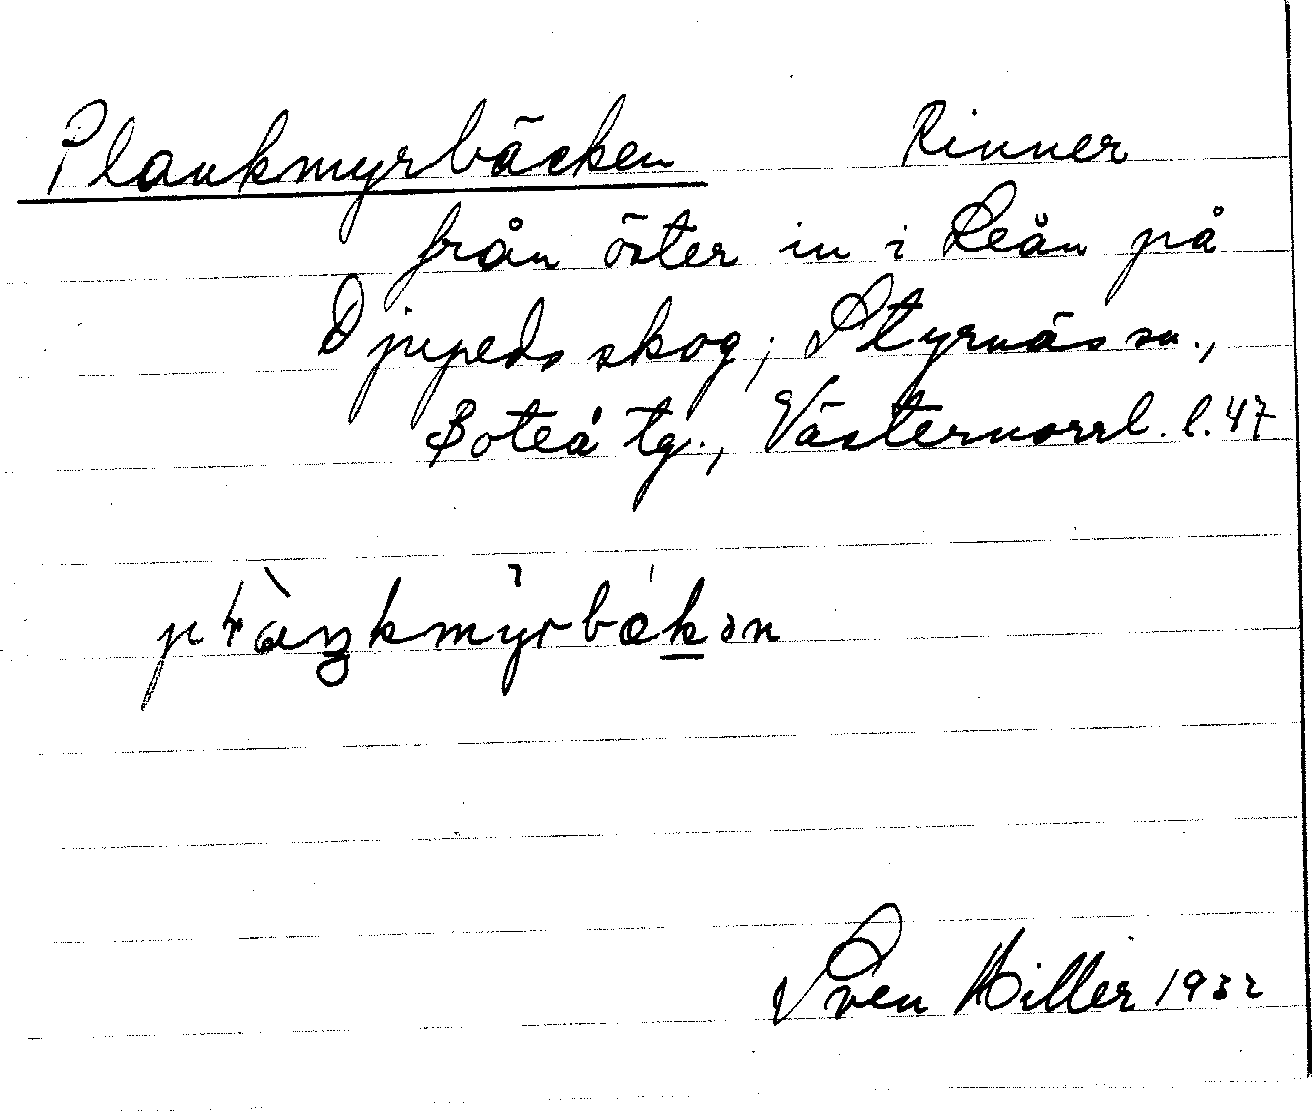 Plankmyrbäcken Rinner
från öster in i Leån på
Djupeds skog, Styrnäs sn.,
Boteå tg., Västernorrl. l. 47
Sven Hiller 1932